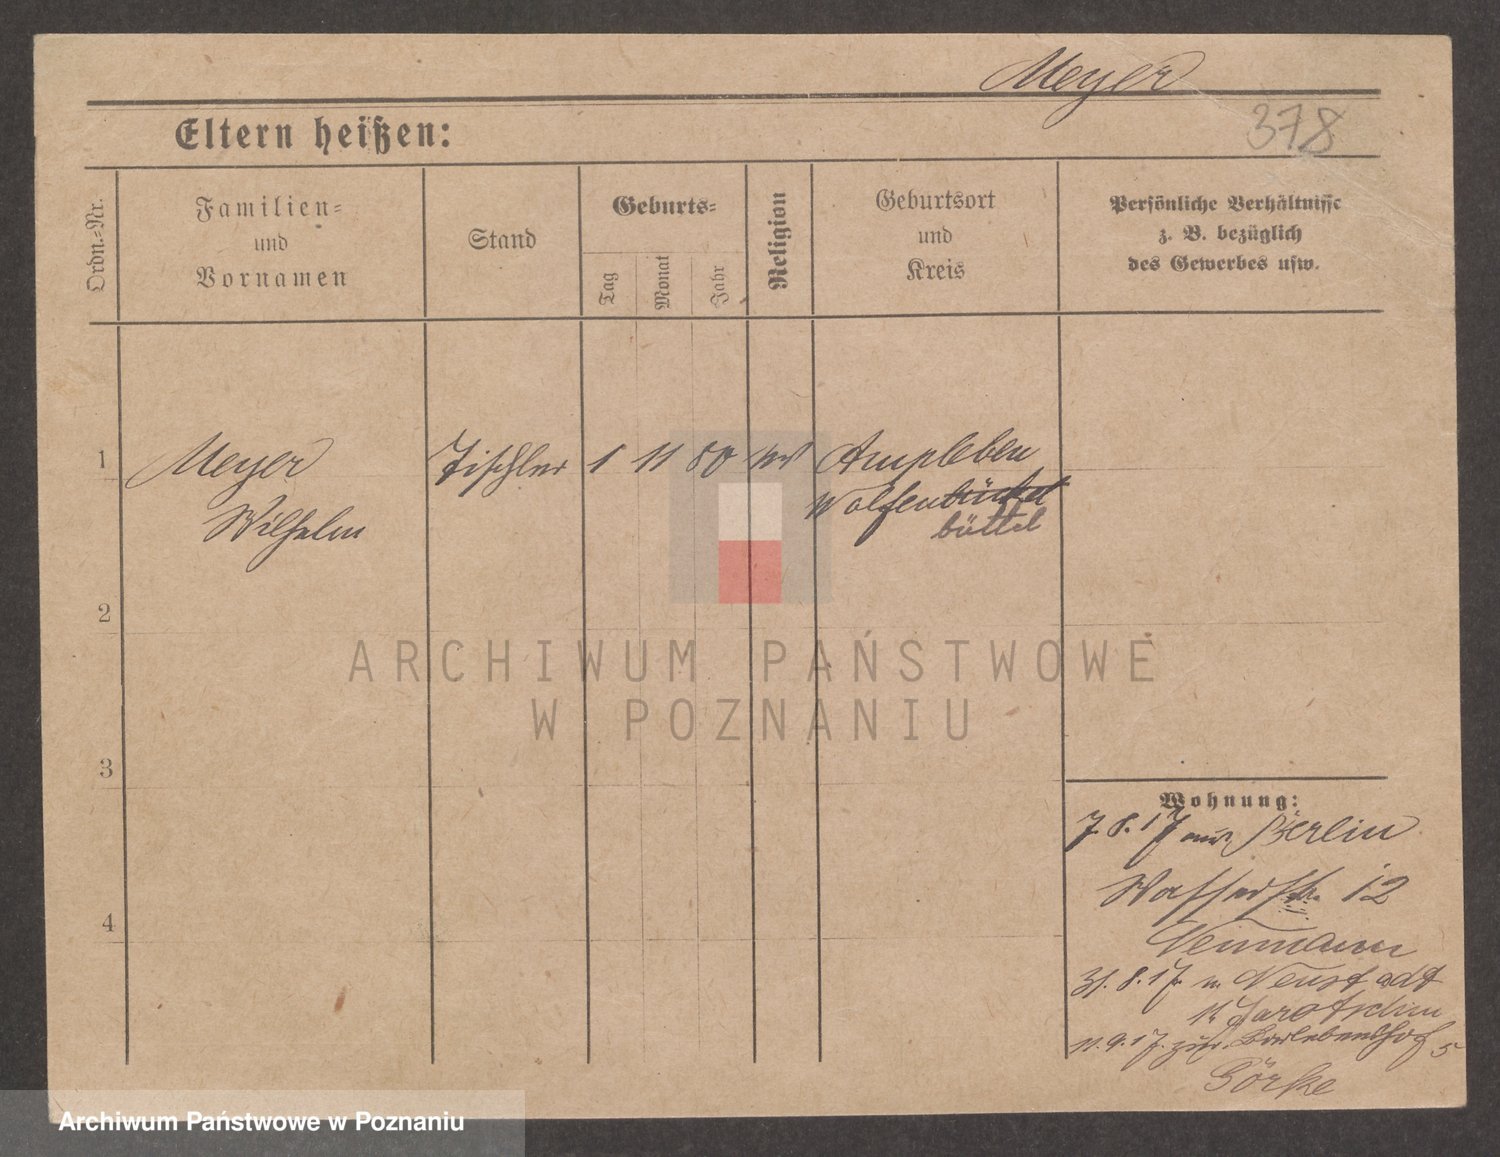 Meyer
378
Eltern heißen:
Ordn.-Nr.
Familien-
und
Vornamen
Stand
Geburts-
Tag
Monat
Jahr
Religion
Geburtsort
und
Kreis
Persönliche Verhältnisse
z. B. bezüglich
des Gewerbes usw.
1 Meyer Tischler 1 11 80 Ampleben
Wilhelm Wolfenbüttel
büttel
2
3
4
ARCHIWUM PAŃSTWOWE
W POZNANIU
Wohnung:
7.8.17 aus Berlin
Wasserstr. 12
Neumann
31.8.17 n. Neustadt
Jarotschin
11.9.17 zur. Karlebenshof 5
Görke
Archiwum Państwowe w Poznaniu